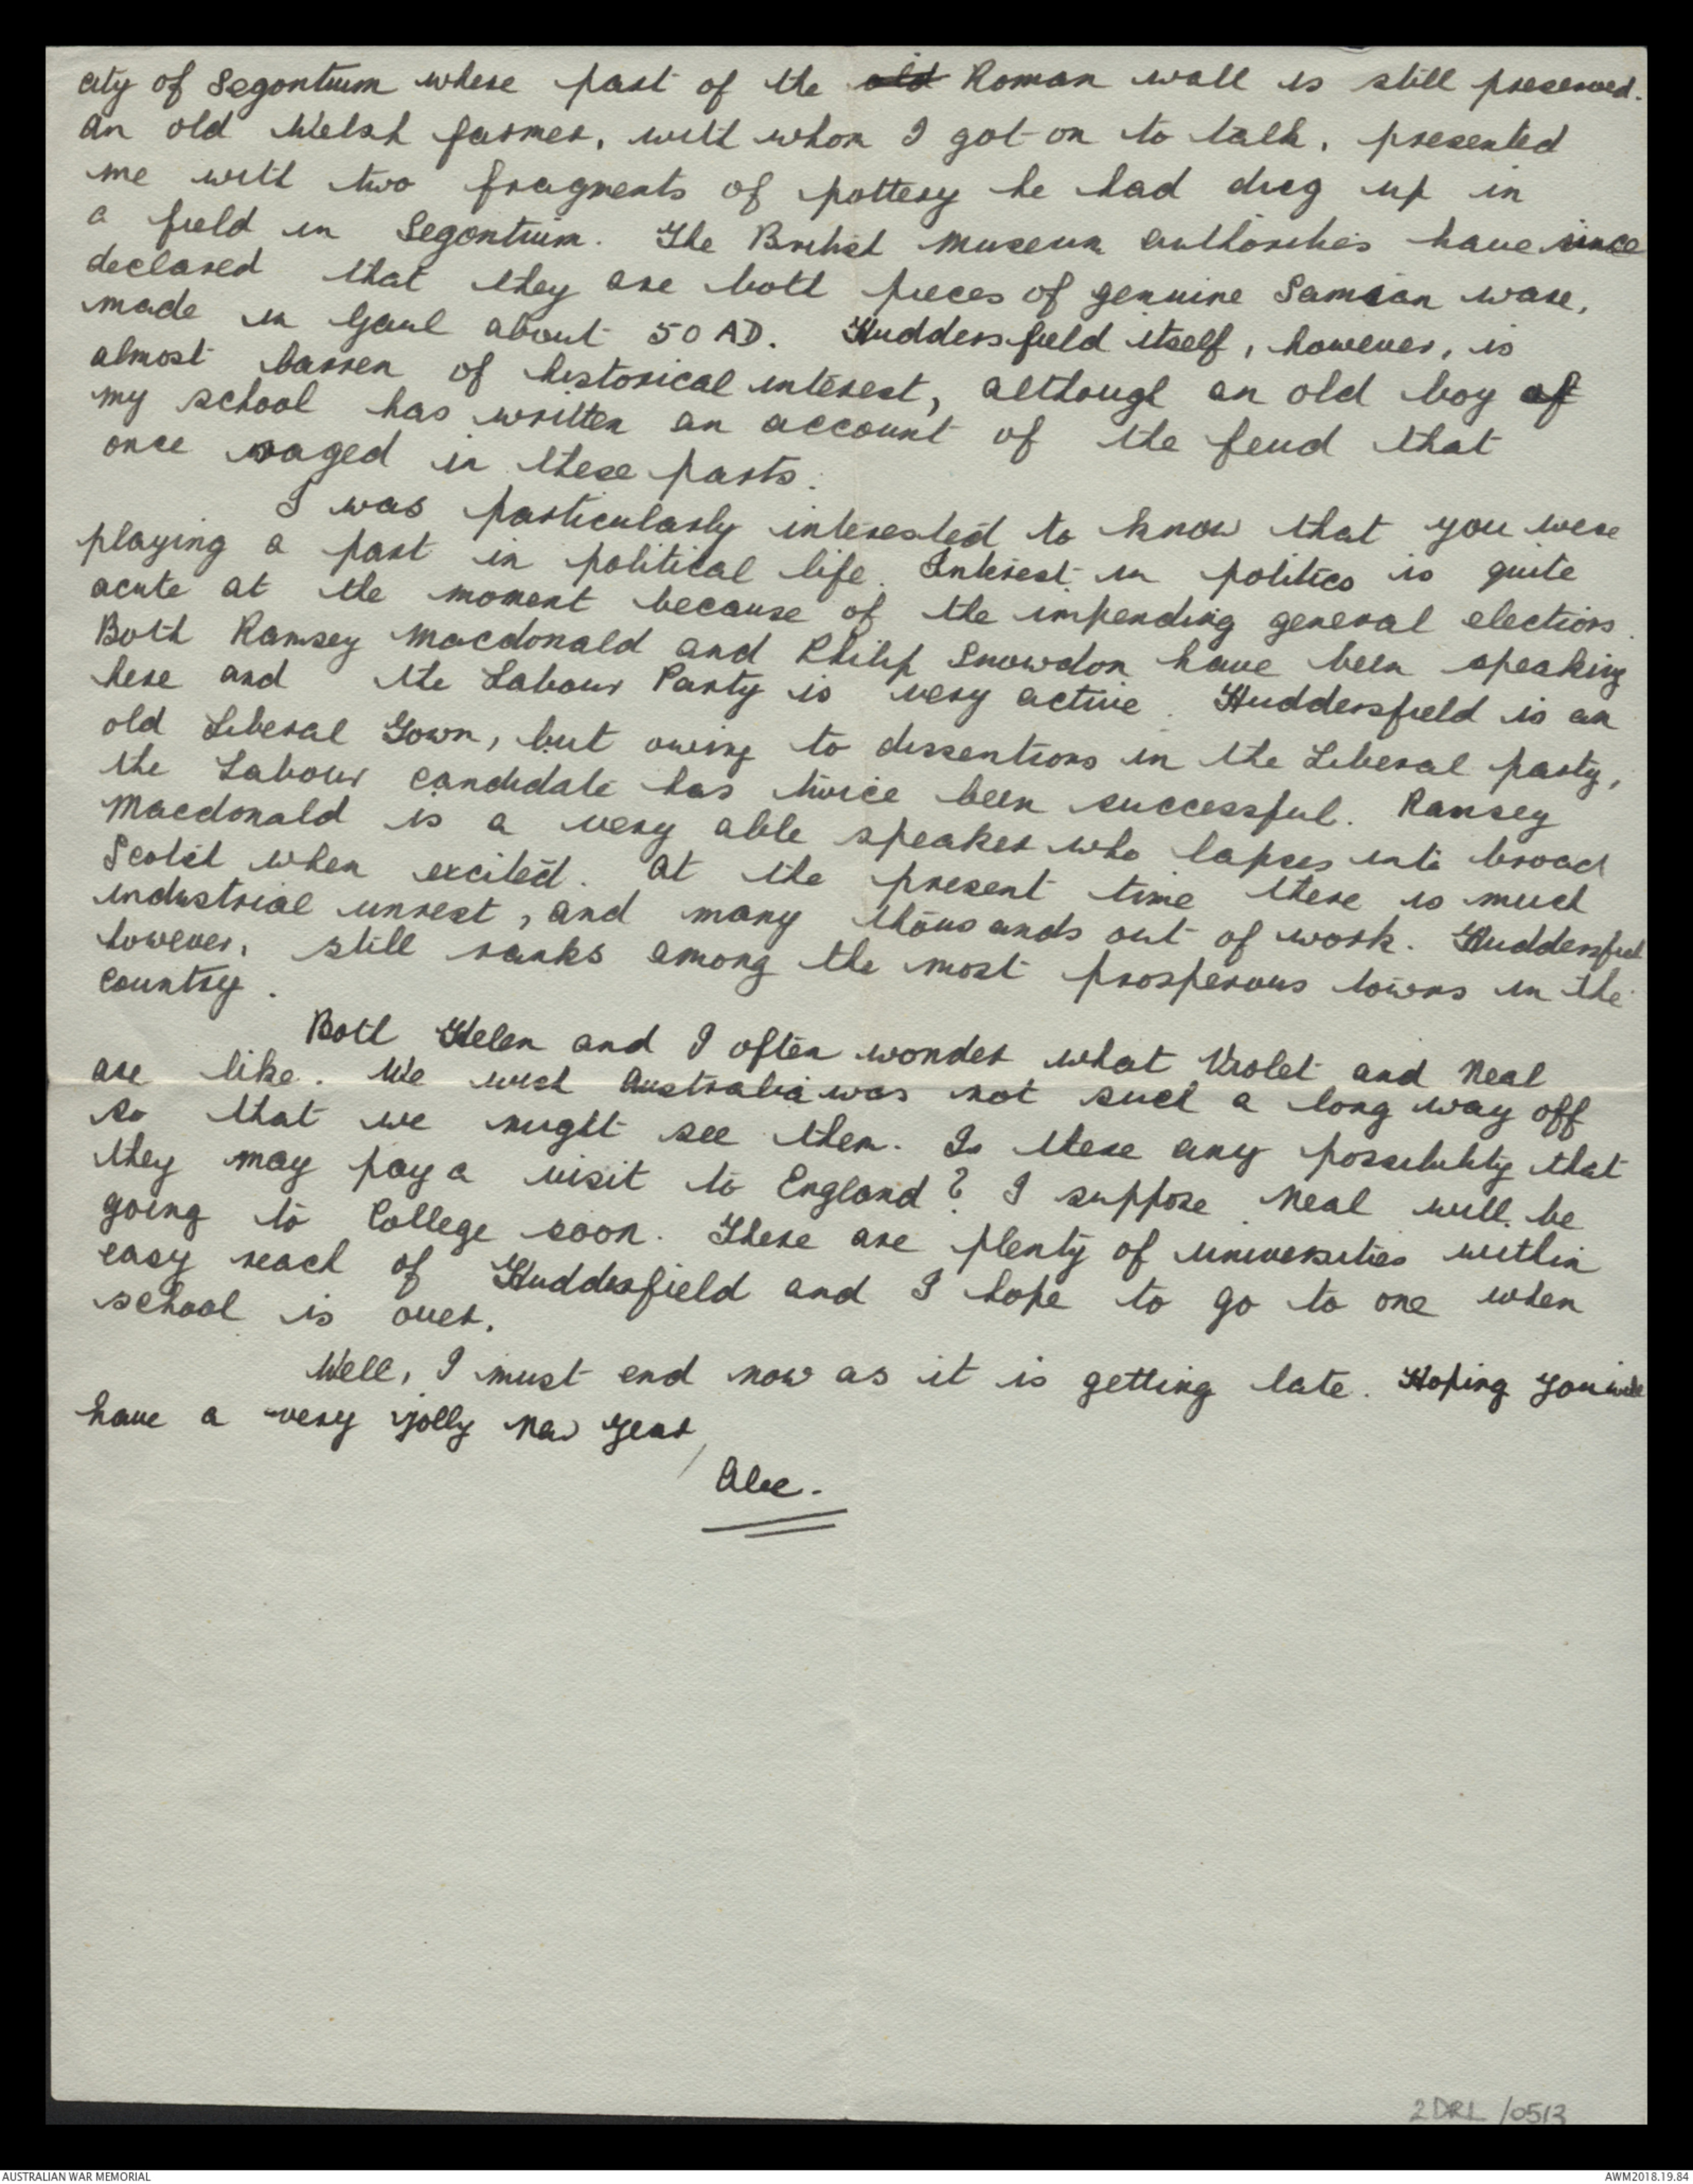 city of Segontium where part of the old Roman wall is still preserved.
An old Welsh farmer, with whom I got on to talk, presented
me with two fragments of pottery he had dug up in
a field in Segontium. The British Museum authorities have since
declared that they are both pieces of genuine Samian ware,
made in Gaul about 50 AD. Huddersfield itself, however, is
almost barren of historical interest, although an old boy of
my school has written an account of the feud that
once raged in these parts.
I was particularly interested to know that you were
playing a part in political life. Interest in politics is quite
acute at the moment because of the impending general elections.
Both Ramsey Macdonald and Philip Snowdon have been speaking
here and the Labour Party is very active. Huddersfield is an
old Liberal Town, but owing to dissentions in the Liberal party,
the Labour candidate has twice been successful. Ramsey
Macdonald is a very able speaker who lapses into broad
Scotch when excited. At the present time there is much
industrial unrest, and many thousands out of work. Huddersfield
however, still ranks among the most prosperous towns in the
country.
Both Helen and I often wonder what Violet and Neal
are like. We wish Australia was not such a long way off
so that we might see them. Is there any possibility that
they may pay a visit to England? I suppose Neal will be
going to College soon. There are plenty of universities within
easy reach of Huddersfield and I hope to go to one when
school is over.
Well, I must end now as it is getting late. Hoping you will
have a very jolly New Year,
Alec.
2DRL /0513
AUSTRALIAN WAR MEMORIAL
AWM2018.19.84